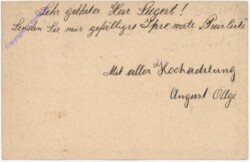 Sehr geehrter Herr Siegert!
Senden Sie mir gefälligst Ihre werte Preisliste
Mit aller Hochachtung
August